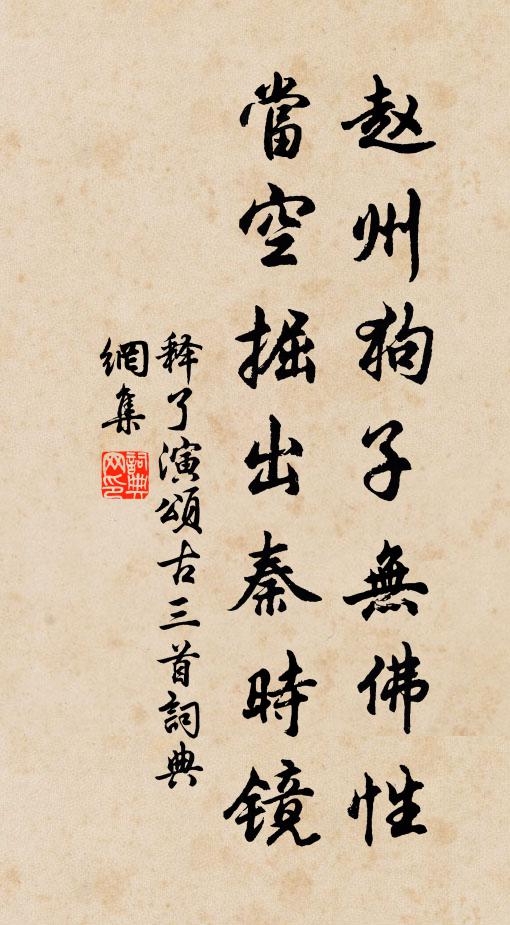 赵州狗子無佛性
當空掘出秦時镜
释了演頌古三首詞典
網集
詞典
网印